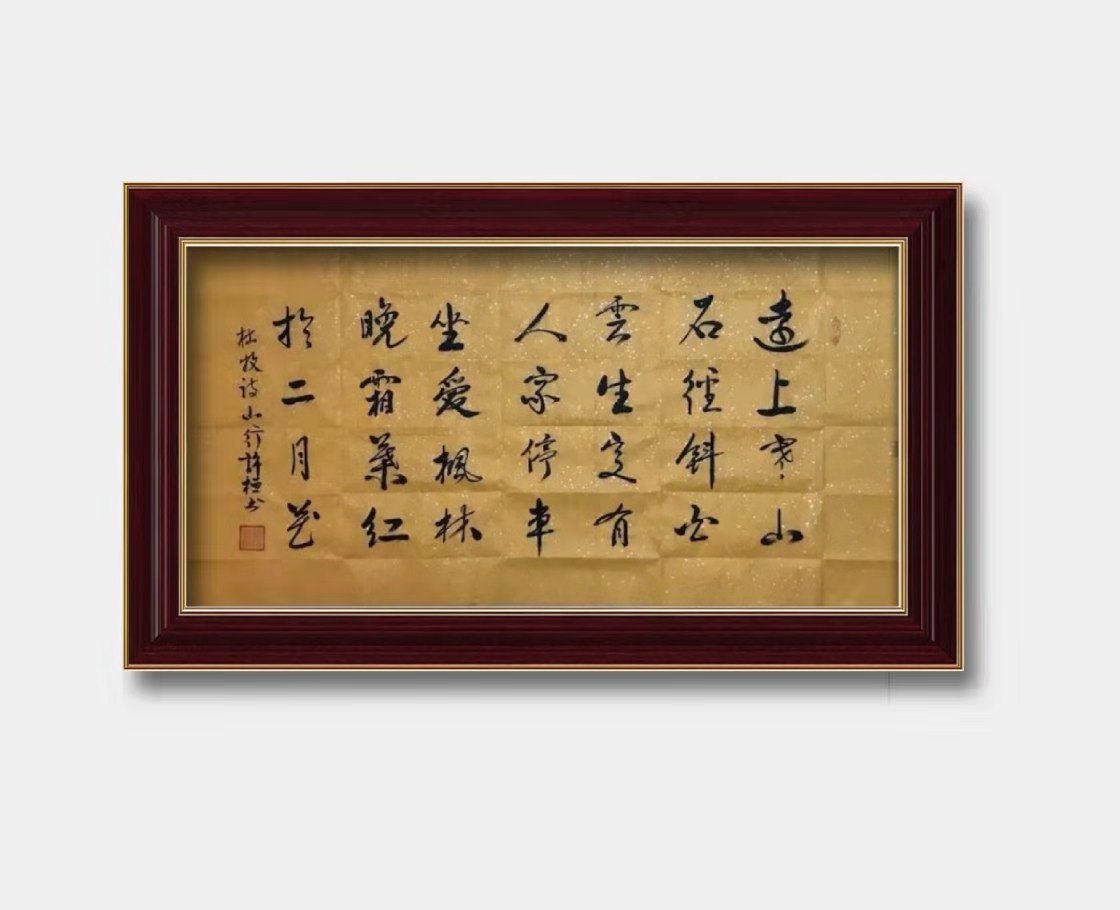 遠上寒山
石徑斜白
雲生處有
人家停車
坐愛楓林
晚霜葉紅
於二月花
杜牧詩山行許桓书